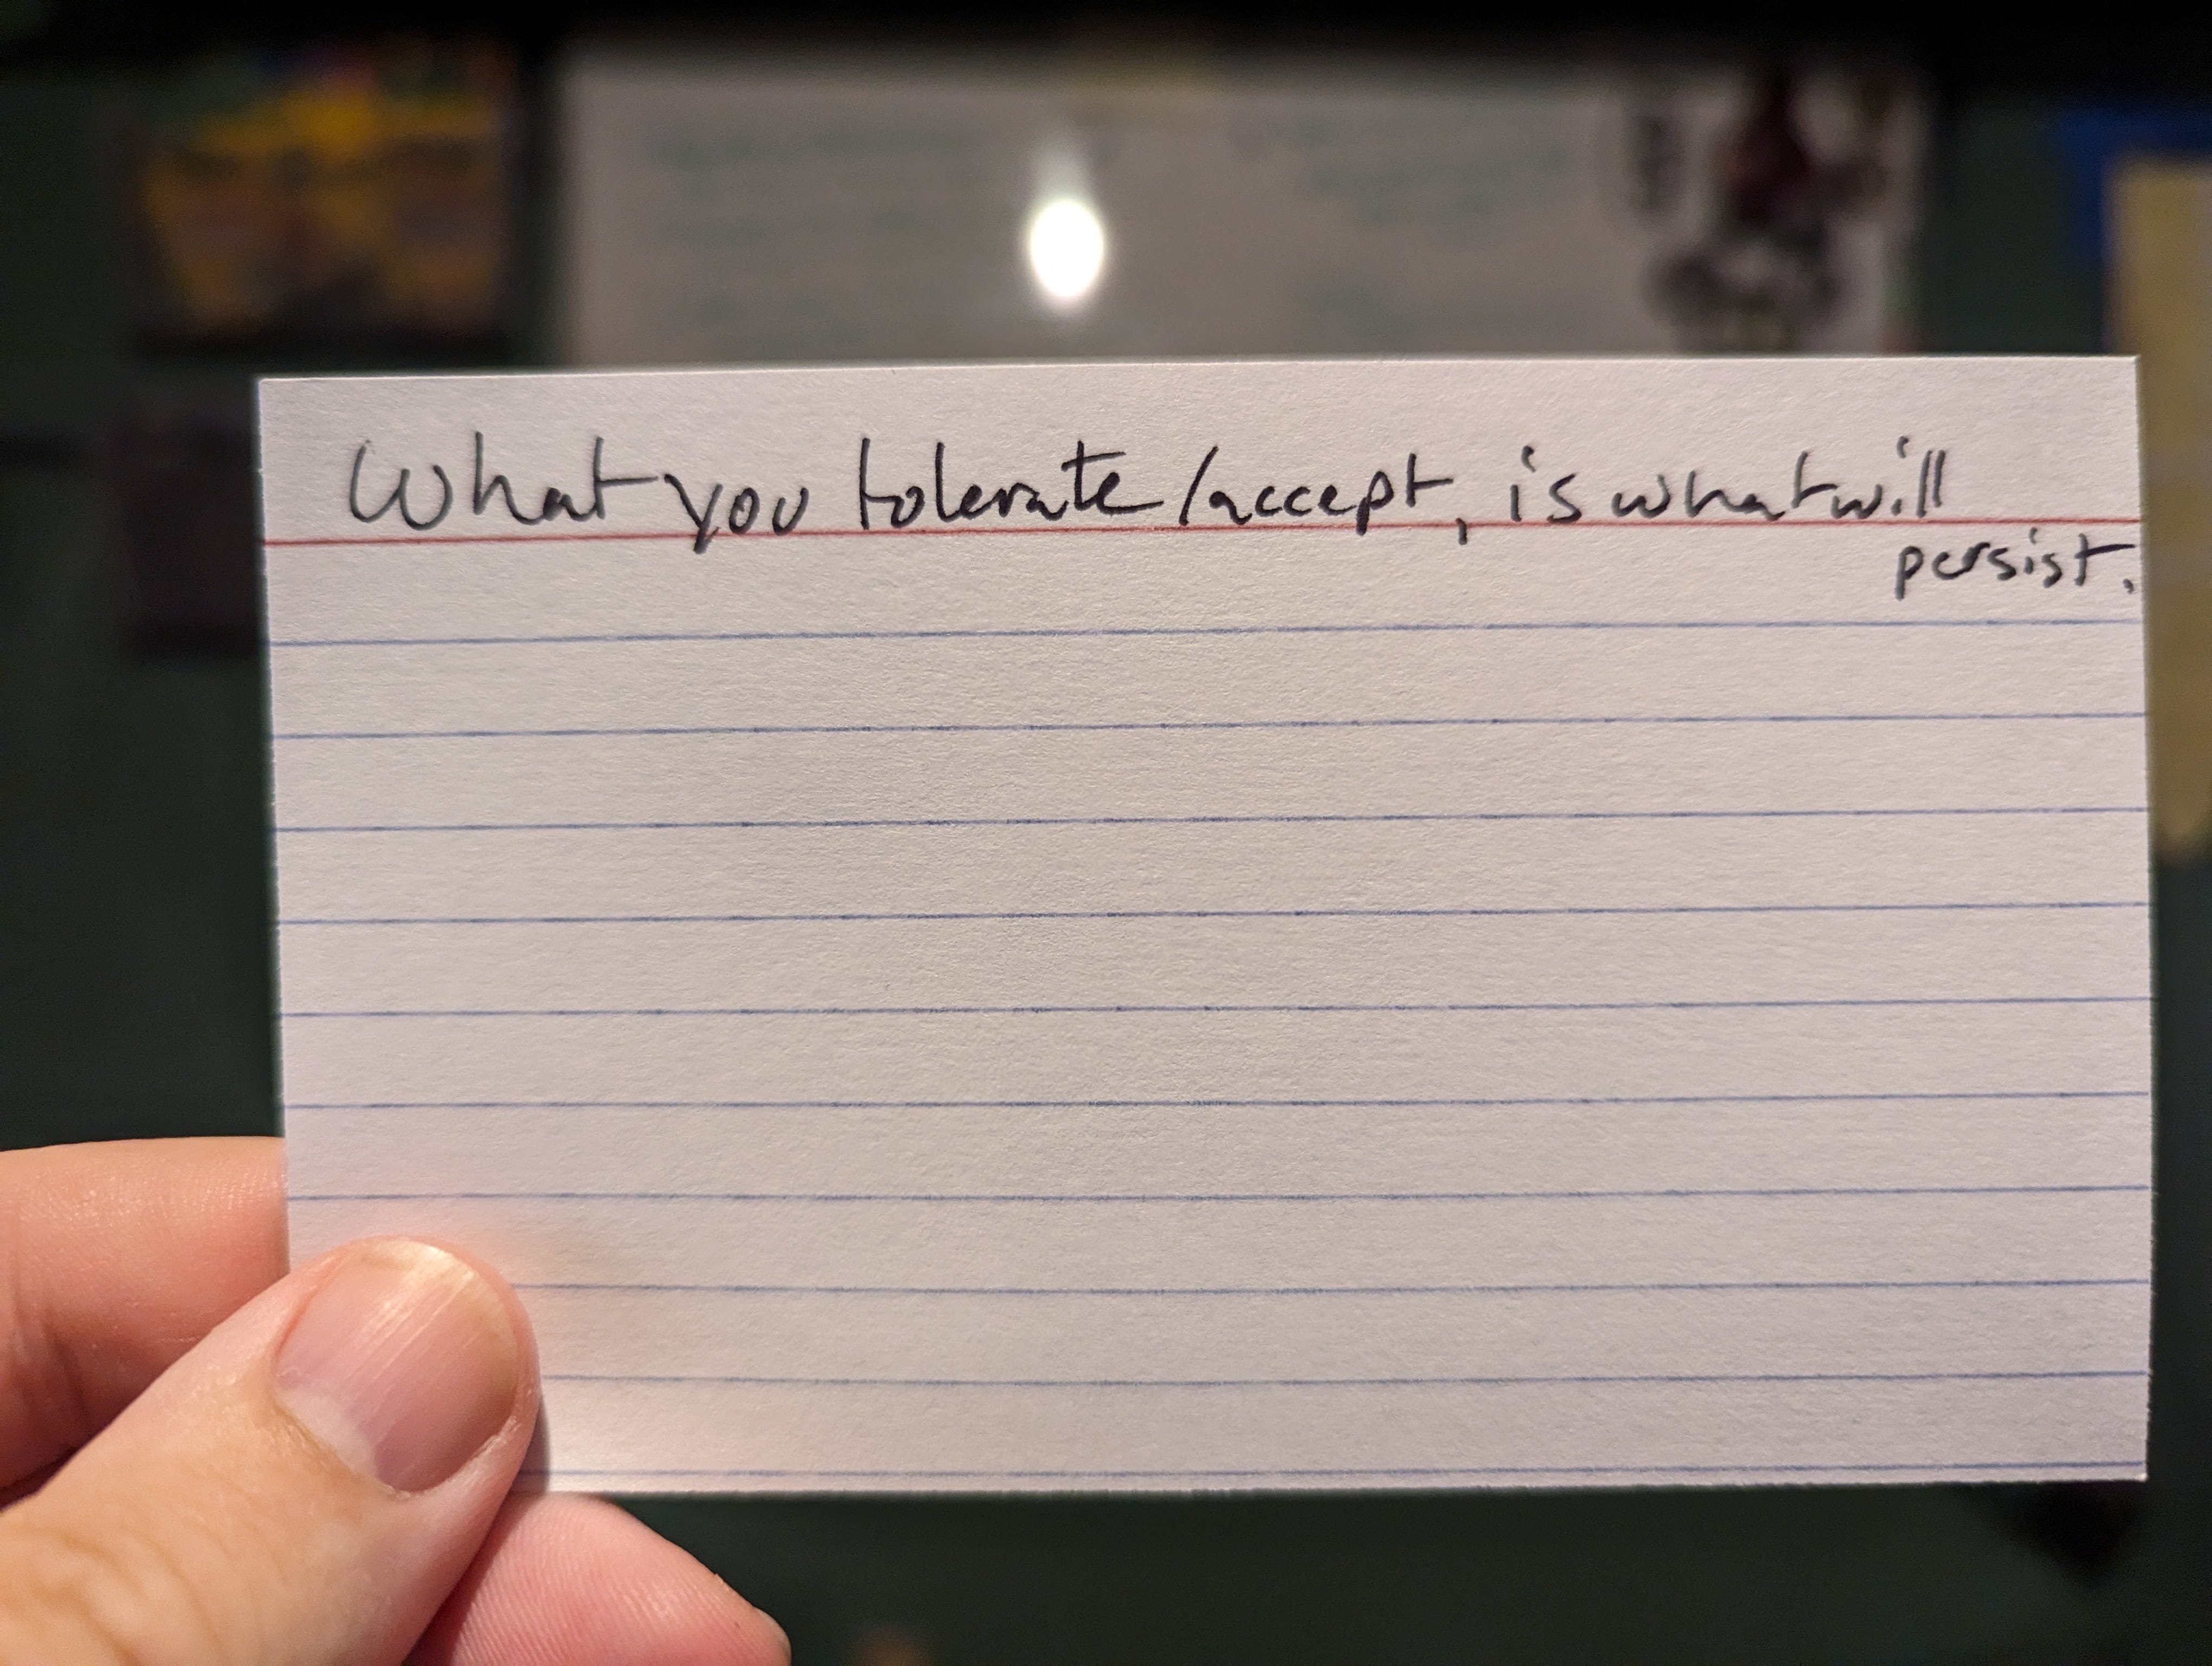 What you tolerate/accept, is what will
persist.